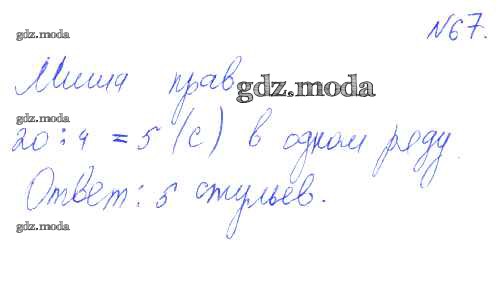 gdz.moda
№67.
Миша прав
gdz.moda
20:4 = 5 (с) в одном ряду.
gdz.moda
Ответ: 5 стульев.
gdz.moda